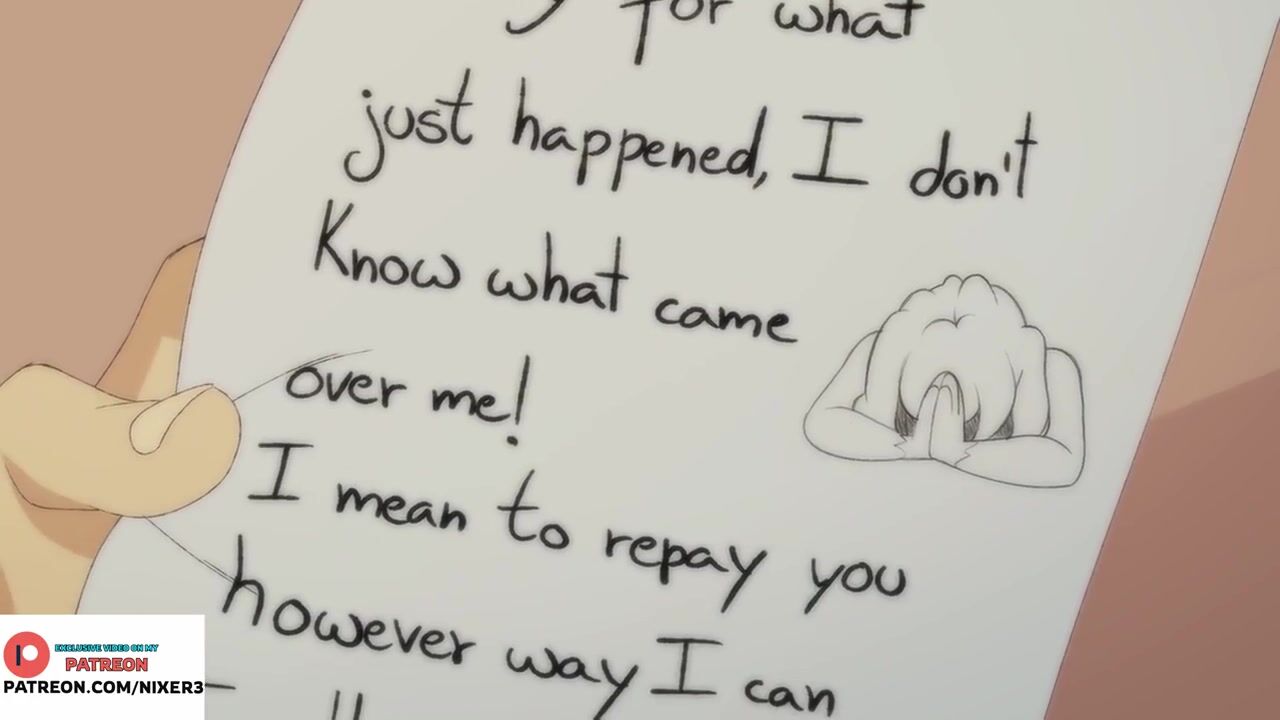 for what
just happened, I don't
Know what came
over me!
I mean to repay you
however way I can
EXCLUSIVE VIDEO ON MY
PATREON
PATREON.COM/NIXER3